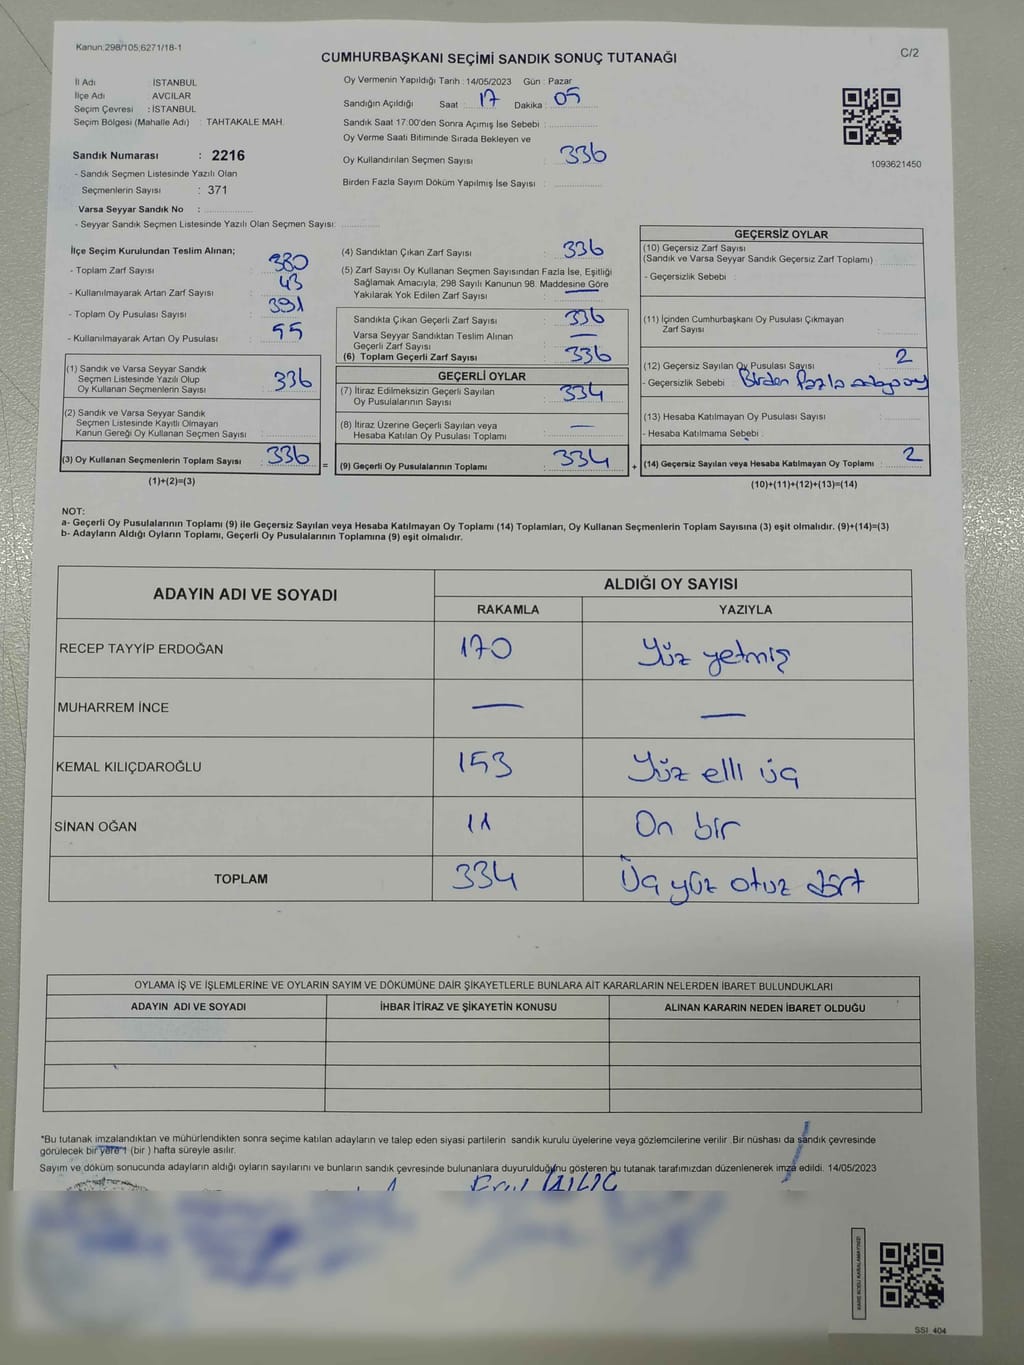 Kanun:298/105;6271/18-1
C/2
CUMHURBAŞKANI SEÇİMİ SANDIK SONUÇ TUTANAĞI
İl Adı : İSTANBUL
İlçe Adı : AVCILAR
Seçim Çevresi : İSTANBUL
Seçim Bölgesi (Mahalle Adı) : TAHTAKALE MAH.
Sandık Numarası : 2216
- Sandık Seçmen Listesinde Yazılı Olan
Seçmenlerin Sayısı : 371
Varsa Seyyar Sandık No :
- Seyyar Sandık Seçmen Listesinde Yazılı Olan Seçmen Sayısı:
Oy Vermenin Yapıldığı Tarih : 14/05/2023 Gün : Pazar
Sandığın Açıldığı Saat : 17 Dakika : 05
Sandık Saat 17:00'den Sonra Açımış İse Sebebi :
Oy Verme Saati Bitiminde Sırada Bekleyen ve
Oy Kullandırılan Seçmen Sayısı : 336
Birden Fazla Sayım Döküm Yapılmış İse Sayısı :
1093621450
İlçe Seçim Kurulundan Teslim Alınan;
- Toplam Zarf Sayısı : 380
- Kullanılmayarak Artan Zarf Sayısı : 43
- Toplam Oy Pusulası Sayısı : 391
- Kullanılmayarak Artan Oy Pusulası : 55
(1) Sandık ve Varsa Seyyar Sandık
Seçmen Listesinde Yazılı Olup
Oy Kullanan Seçmenlerin Sayısı : 336
(2) Sandık ve Varsa Seyyar Sandık
Seçmen Listesinde Kayıtlı Olmayan
Kanun Gereği Oy Kullanan Seçmen Sayısı :
(3) Oy Kullanan Seçmenlerin Toplam Sayısı : 336
(1)+(2)=(3)
(4) Sandıktan Çıkan Zarf Sayısı : 336
(5) Zarf Sayısı Oy Kullanan Seçmen Sayısından Fazla İse, Eşitliği
Sağlamak Amacıyla; 298 Sayılı Kanunun 98. Maddesine Göre
Yakılarak Yok Edilen Zarf Sayısı : —
Sandıkta Çıkan Geçerli Zarf Sayısı : 336
Varsa Seyyar Sandıktan Teslim Alınan
Geçerli Zarf Sayısı : —
(6) Toplam Geçerli Zarf Sayısı : 336
GEÇERLİ OYLAR
(7) İtiraz Edilmeksizin Geçerli Sayılan
Oy Pusulalarının Sayısı : 334
(8) İtiraz Üzerine Geçerli Sayılan veya
Hesaba Katılan Oy Pusulası Toplamı : —
= (9) Geçerli Oy Pusulalarının Toplamı : 334
GEÇERSİZ OYLAR
(10) Geçersiz Zarf Sayısı
(Sandık ve Varsa Seyyar Sandık Geçersiz Zarf Toplamı) :
- Geçersizlik Sebebi :
(11) İçinden Cumhurbaşkanı Oy Pusulası Çıkmayan
Zarf Sayısı :
(12) Geçersiz Sayılan Oy Pusulası Sayısı : 2
- Geçersizlik Sebebi : Birden fazla
(13) Hesaba Katılmayan Oy Pusulası Sayısı :
- Hesaba Katılmama Sebebi :
+ (14) Geçersiz Sayılan veya Hesaba Katılmayan Oy Toplamı : 2
(10)+(11)+(12)+(13)=(14)
NOT:
a- Geçerli Oy Pusulalarının Toplamı (9) ile Geçersiz Sayılan veya Hesaba Katılmayan Oy Toplamı (14) Toplamları, Oy Kullanan Seçmenlerin Toplam Sayısına (3) eşit olmalıdır. (9)+(14)=(3)
b- Adayların Aldığı Oyların Toplamı, Geçerli Oy Pusulalarının Toplamına (9) eşit olmalıdır.
ADAYIN ADI VE SOYADI ALDIĞI OY SAYISI
RAKAMLA YAZIYLA
RECEP TAYYİP ERDOĞAN 170 Yüz yetmiş
MUHARREM İNCE — —
KEMAL KILIÇDAROĞLU 153 Yüz elli üç
SİNAN OĞAN 11 On bir
TOPLAM 334 Üç yüz otuz dört
OYLAMA İŞ VE İŞLEMLERİNE VE OYLARIN SAYIM VE DÖKÜMÜNE DAİR ŞİKAYETLERLE BUNLARA AİT KARARLARIN NELERDEN İBARET BULUNDUKLARI
ADAYIN ADI VE SOYADI İHBAR İTİRAZ VE ŞİKAYETİN KONUSU ALINAN KARARIN NEDEN İBARET OLDUĞU
*Bu tutanak imzalandıktan ve mühürlendikten sonra seçime katılan adayların ve talep eden siyasi partilerin sandık kurulu üyelerine veya gözlemcilerine verilir. Bir nüshası da sandık çevresinde
görülecek bir yere 1 (bir) hafta süreyle asılır.
Sayım ve döküm sonucunda adayların aldığı oyların sayılarını ve bunların sandık çevresinde bulunanlara duyurulduğunu gösteren bu tutanak tarafımızdan düzenlenerek imza edildi. 14/05/2023
KARE KODU KARALAMAYINIZ!
SSI_404